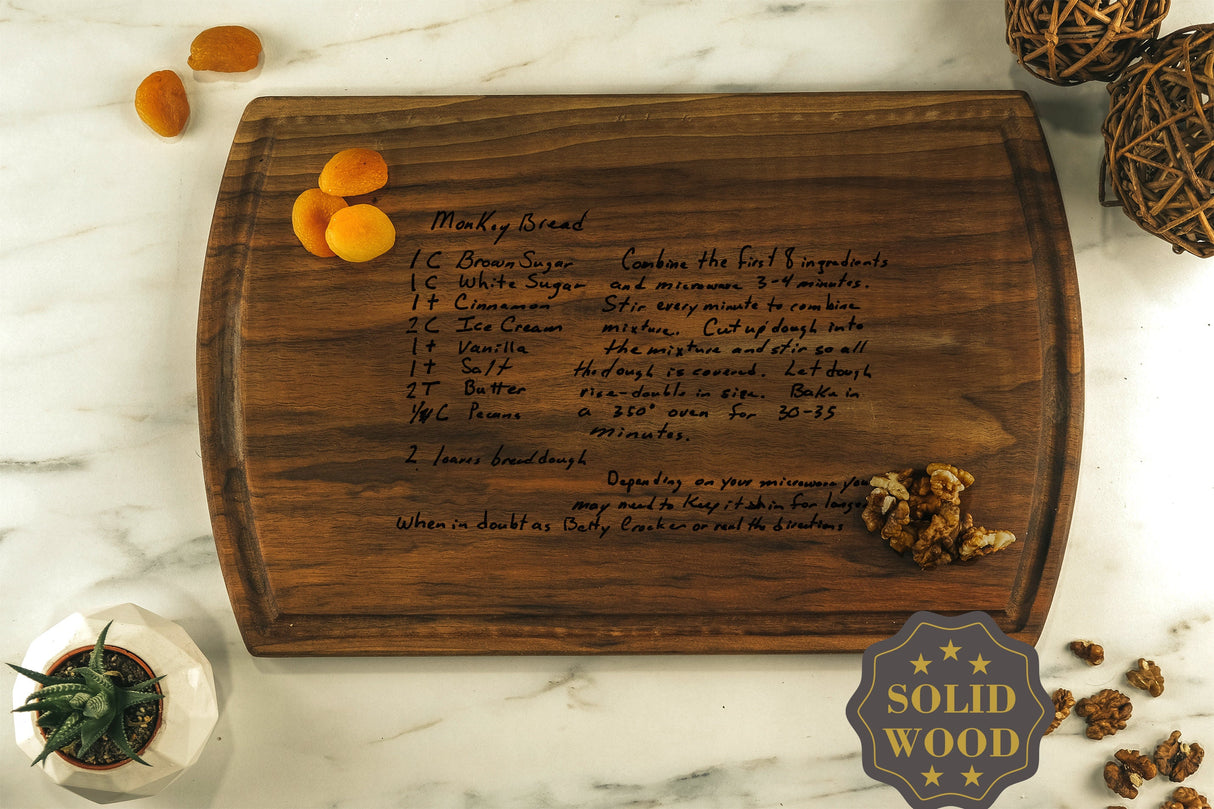 Monkey Bread
1 C Brown Sugar
1 C White Sugar
1 t Cinnamon
2 C Ice Cream
1 t Vanilla
1 t Salt
2 T Butter
C Pecans
2 loaves bread dough
Combine the first 8 ingredients
and microwave 3-4 minutes.
Stir every minute to combine
mixture. Cut up dough into
the mixture and stir so all
the dough is covered. Let dough
rise-double in size. Bake in
a 350° oven for 30-35
minutes.
Depending on your microwave you
may need to keep it in for longer
When in doubt as Betty Crocker or read the directions
SOLID
WOOD